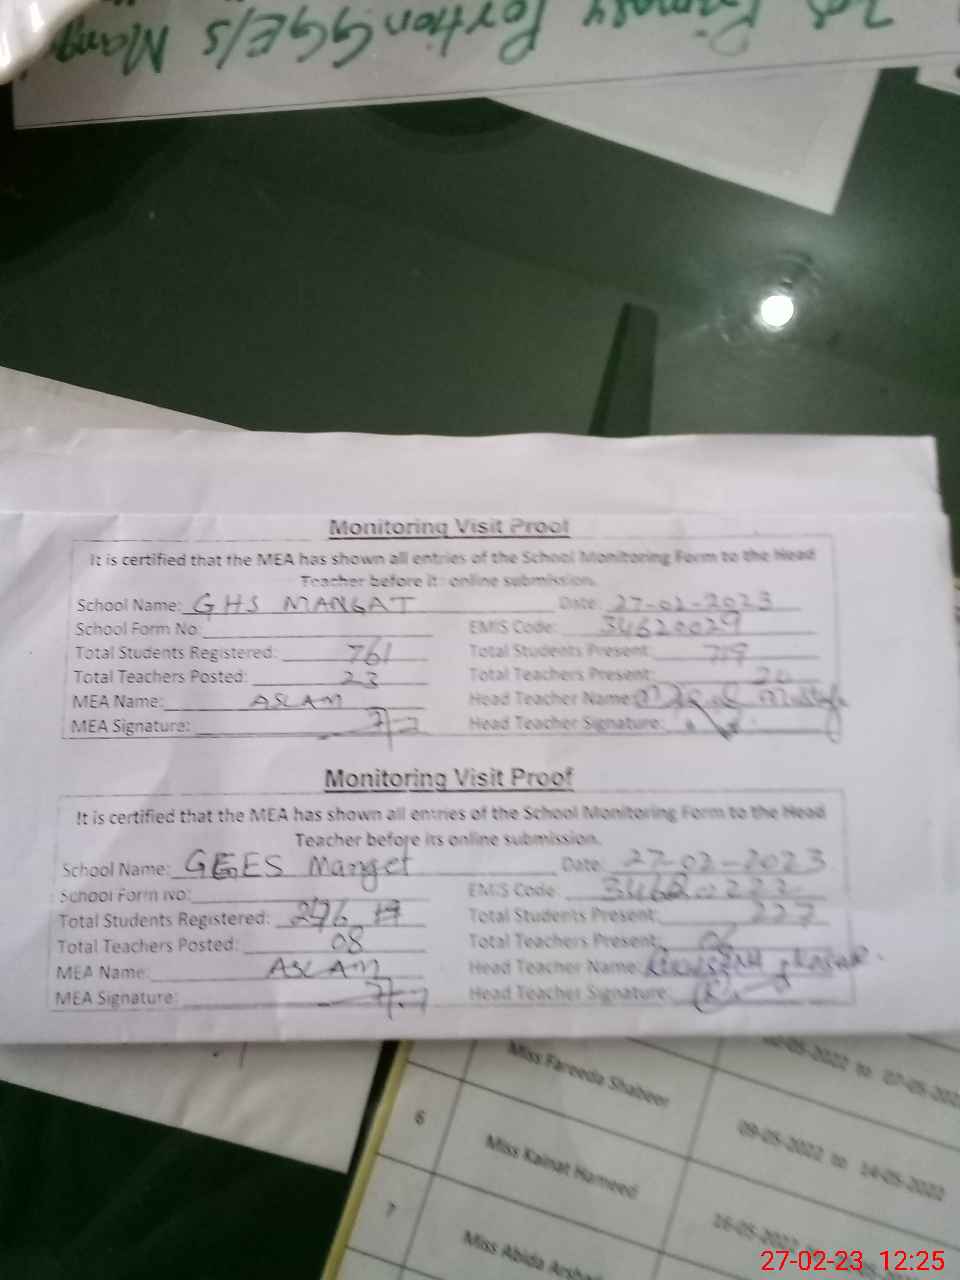 Primary Portion GGE/S Mang
Monitoring Visit Proof
It is certified that the MEA has shown all entries of the School Monitoring Form to the Head
Teacher before its online submission.
School Name: GHS MANGAT Date: 27-02-2023
School Form No: EMIS Code: 34620029
Total Students Registered: 761 Total Students Present: 719
Total Teachers Posted: 23 Total Teachers Present: 20
MEA Name: ASLAM Head Teacher Name:
MEA Signature: Head Teacher Signature:
Monitoring Visit Proof
It is certified that the MEA has shown all entries of the School Monitoring Form to the Head
Teacher before its online submission.
School Name: GGES Manget Date: 27-02-2023
School Form No: EMIS Code:
Total Students Registered: 276 Total Students Present: 227
Total Teachers Posted: 08 Total Teachers Present:
MEA Name: ASLAM Head Teacher Name:
MEA Signature: Head Teacher Signature:
Miss Fareeda Shabeer 02-05-2022 to 07-05-202
6 Miss Kainat Hameed 09-05-2022 to 14-05-2022
7 Miss Abida Arsha 16-05-2022
27-02-23 12:25